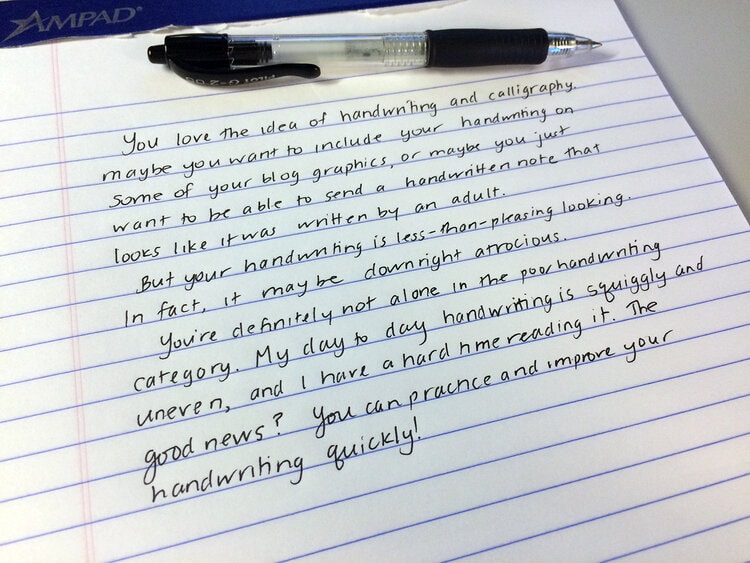 AMPAD®
PILOT G-2 05
You love the idea of handwriting and calligraphy.
maybe you want to include your handwriting on
some of your blog graphics, or maybe you just
want to be able to send a handwritten note that
looks like it was written by an adult.
But your handwriting is less-than-pleasing looking.
In fact, it may be downright atrocious.
You're definitely not alone in the poor handwriting
category. My day to day handwriting is squiggly and
uneven, and I have a hard time reading it. The
good news? You can practice and improve your
handwriting quickly!